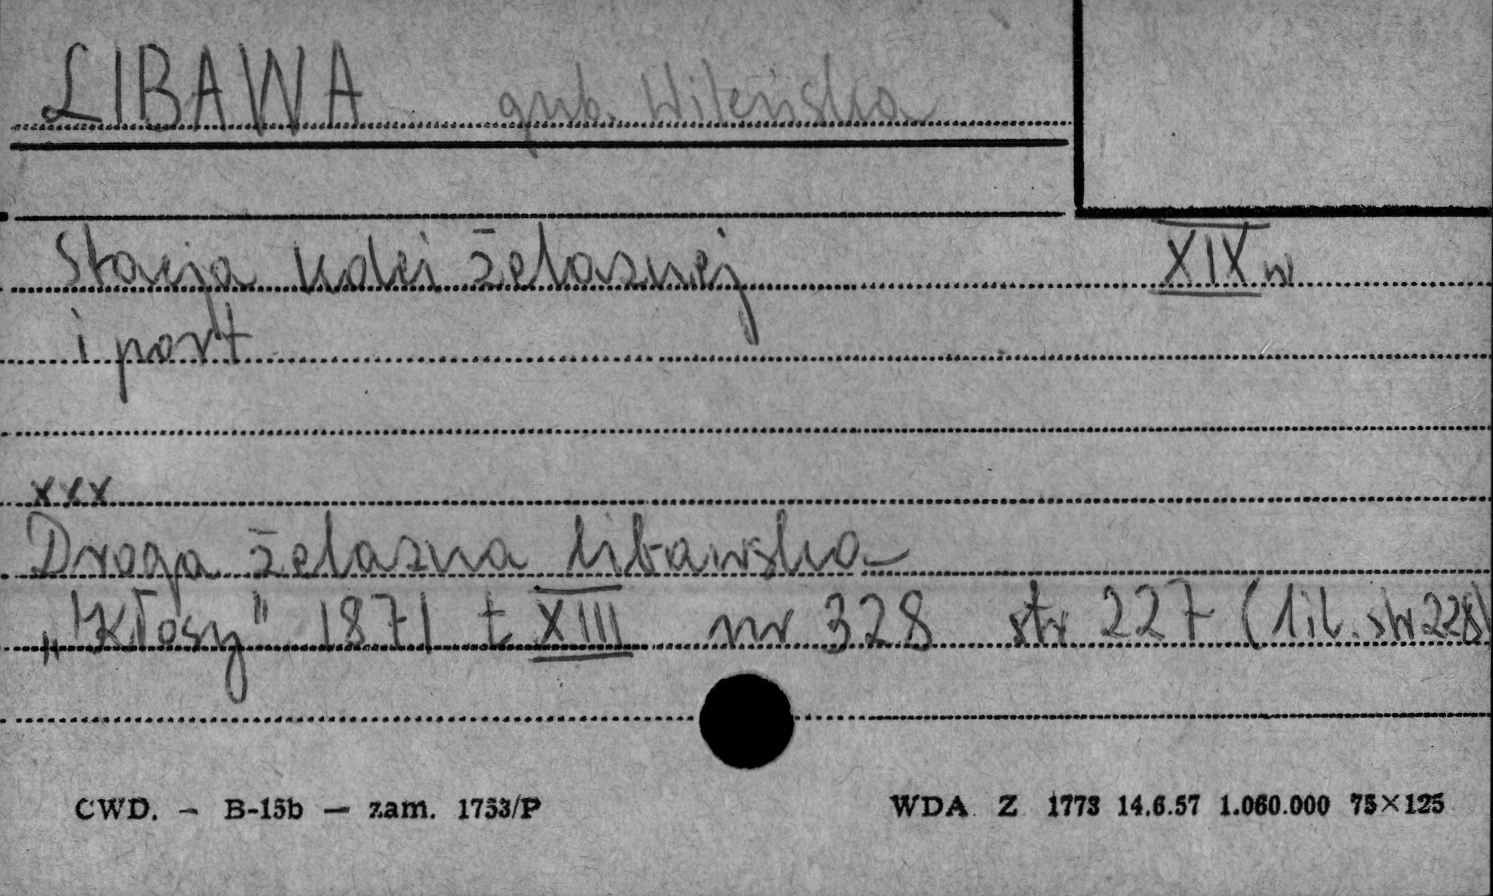 LIBAWA gub. Wileńska
Stacja kolei żelaznej XIX w
i port
xxx
Droga żelazna libawska
„Kłosy" 1871 t XIII nr 328 str 227 (lil. str 228)
CWD. — B-15b — zam. 1753/P WDA Z 1773 14.6.57 1.060.000 75×125